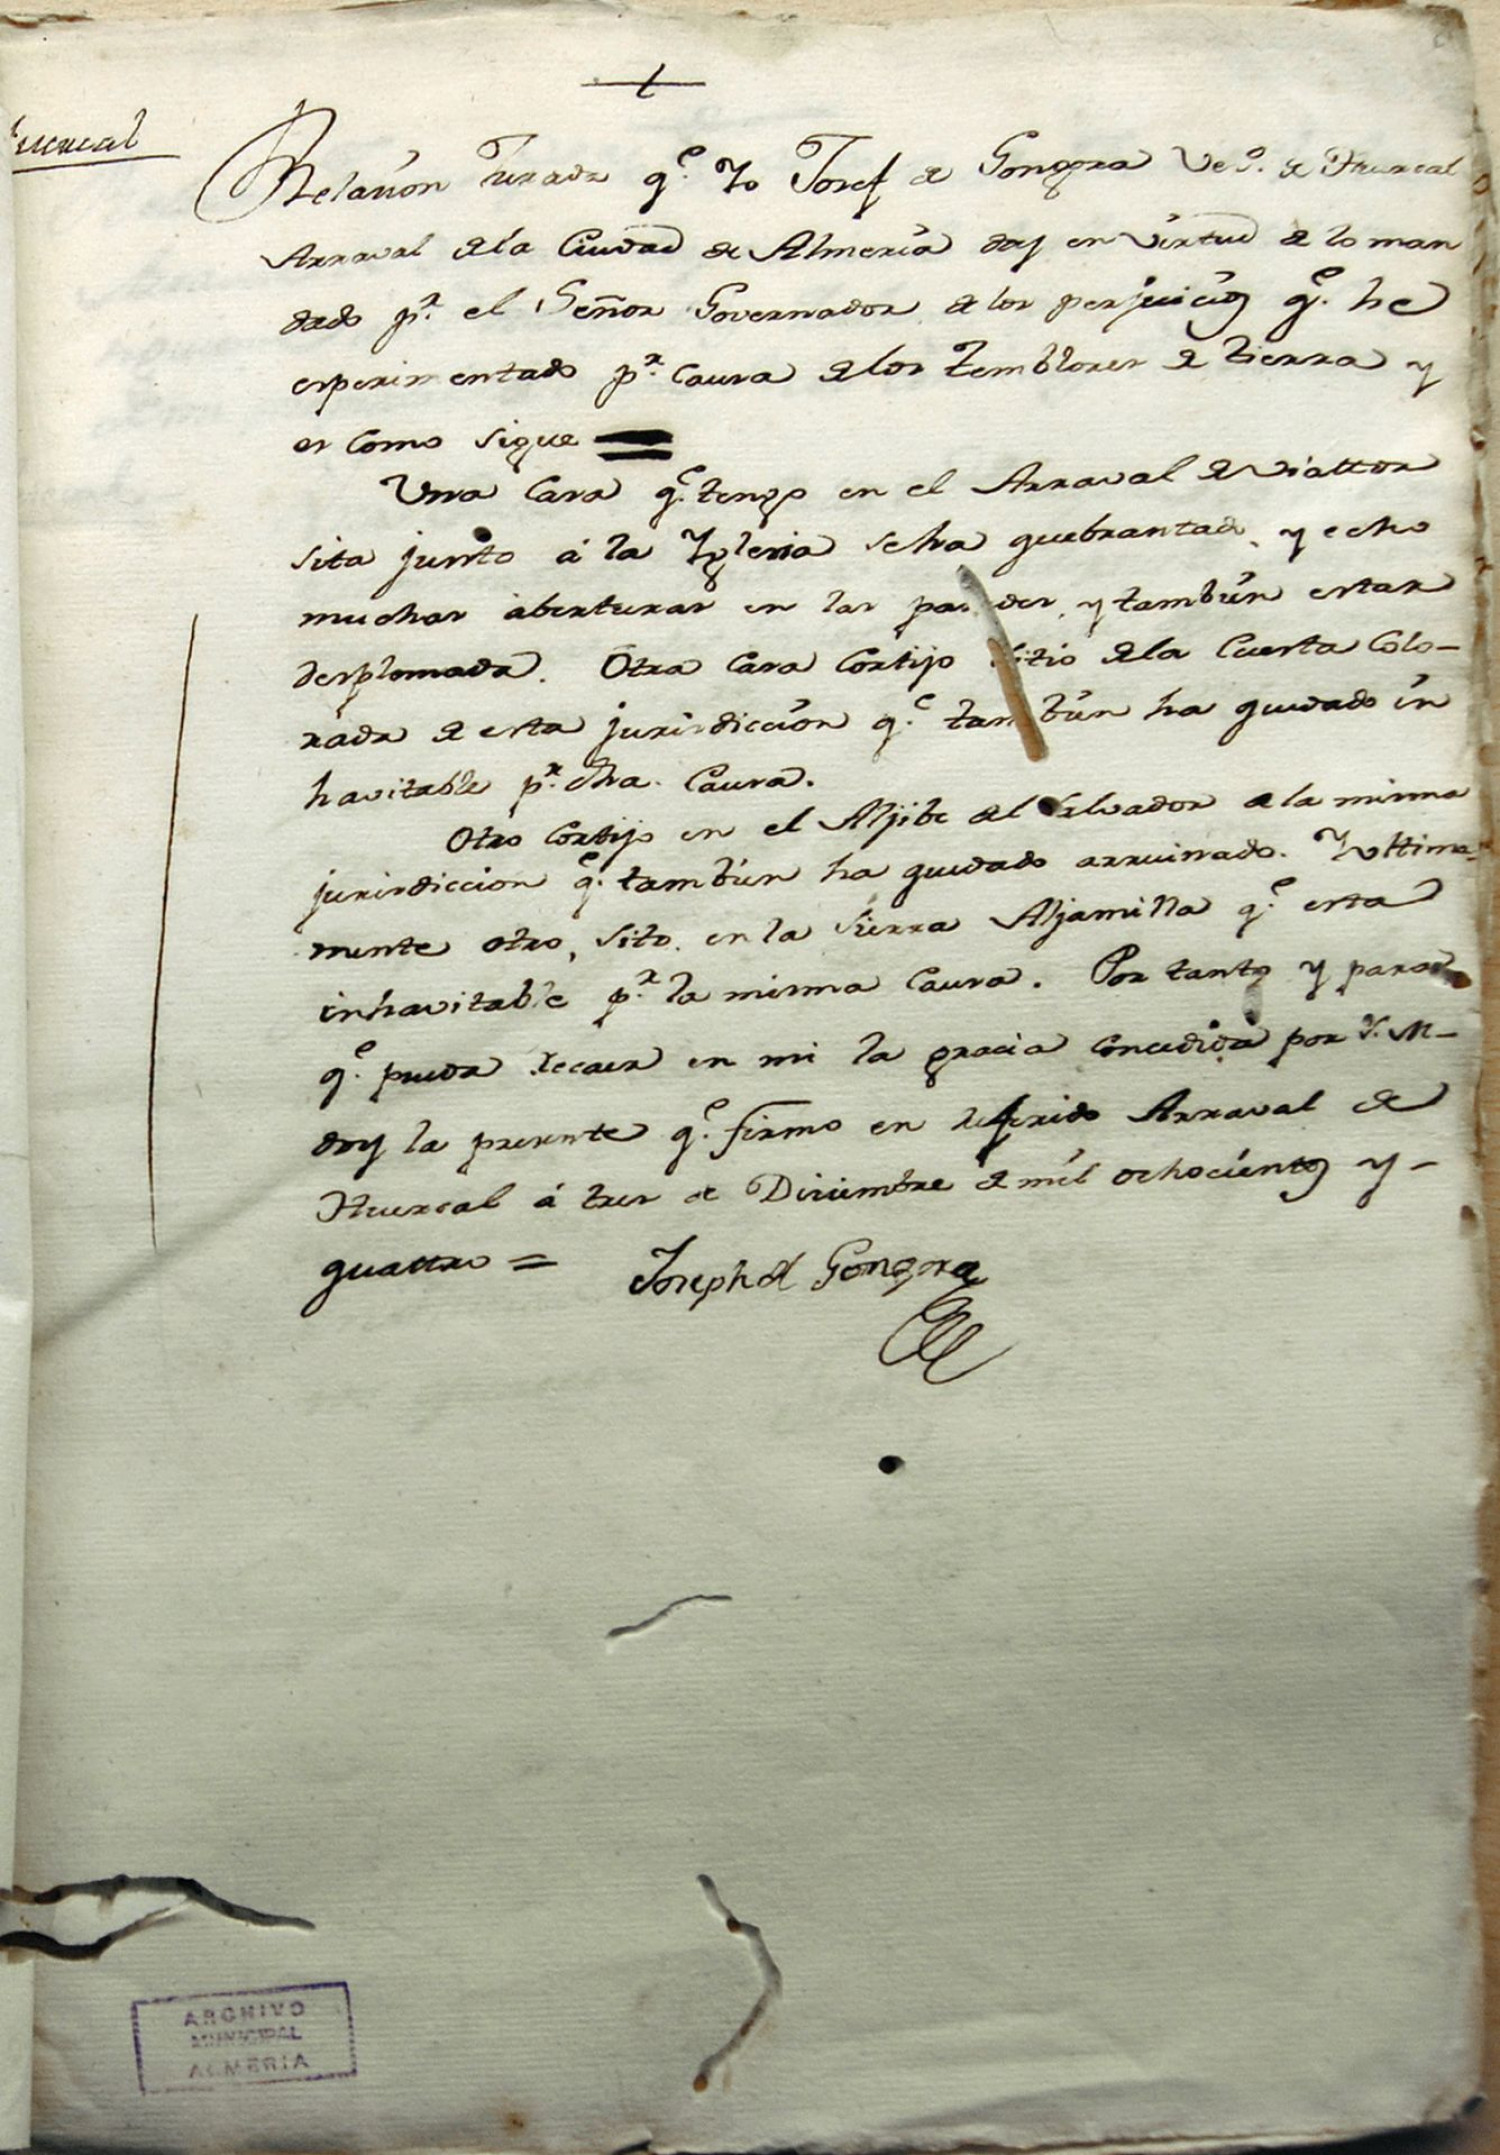 Relacion Jurada q.e Yo Josef de Gongora Ve.o de Huercal
Arraval de la Ciudad de Almeria doy en virtud de lo man
dado p.r el Señor Governador de los perjuicios q.e he
esperimentado p.r causa de los temblores de tierra y
es como sigue =
Una Casa q.e tengo en el Arraval de Viattor
sita junto á la Yglesia se ha quebrantado, y echo
muchas aberturas en las paredes, y tambien estar
desplomada. Otra Casa Cortijo sitio de la Cuesta Colo-
rada de esta jurisdiccion q.e tambien ha quedado in
havitable p.r dha. Causa.
Otro Cortijo en el Aljibe del Salvador de la misma
jurisdiccion q.e tambien ha quedado arruinado. Y ultima-
mente otro, sito en la Sierra Aljamilla q.e esta
inhavitable p.r la misma Causa. Por tanto y para
q.e pueda recaer en mi la gracia concedida por S. M-
doy la presente q.e firmo en referido Arraval de
Huercal á tres de Diciembre de mil ochocientos y-
quattro = Joseph de Gongora
ARCHIVO
MUNICIPAL
ALMERIA